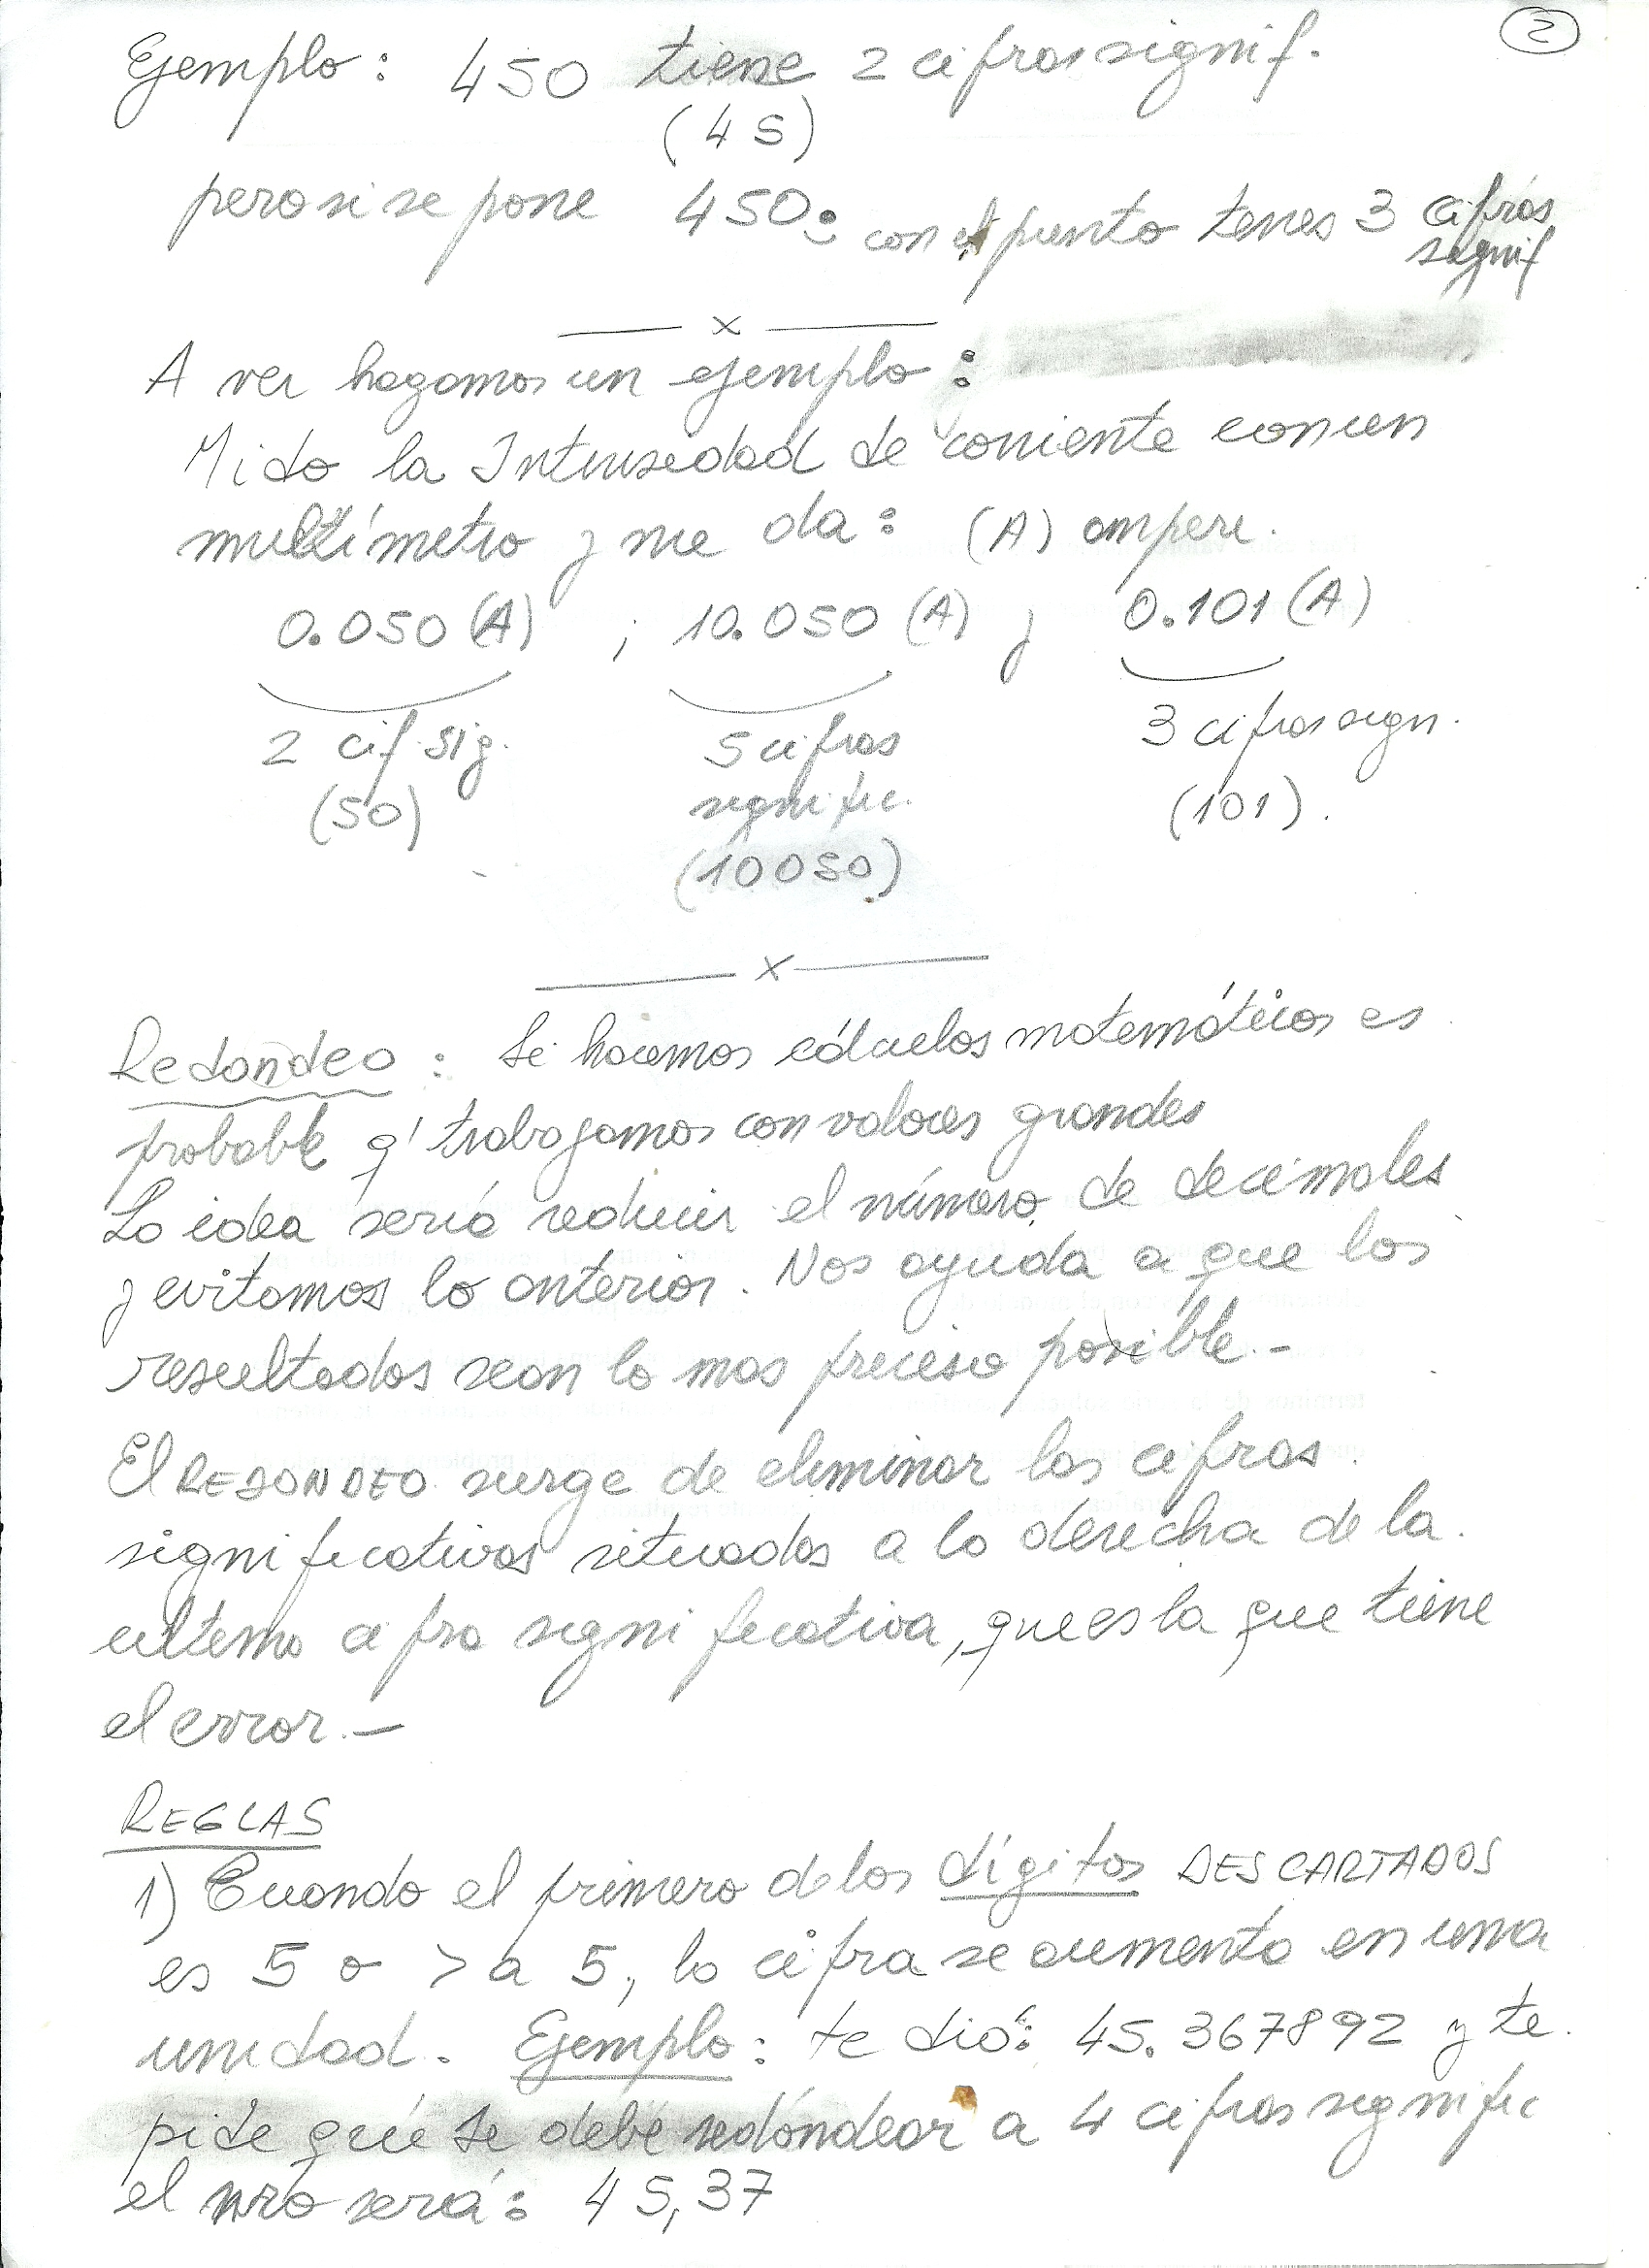 2
Ejemplo: 450 tiene 2 cifras signif.
(45)
pero si se pone 450. con el punto tenes 3 cifras
signif
x
A ver hagamos un ejemplo:
Mido la Intensidad de corriente con un
multímetro y me da: (A) ampere.
0.050 (A) ; 10.050 (A) y 0.101 (A)
2 cif. sig. 5 cifras 3 cifras sign.
(50) signific. (101).
(10050)
x
Redondeo: Si hacemos cálculos matemáticos es
probable q' trabajamos con valores grandes
La idea sería reducir el número de decimales
y evitamos lo anterior. Nos ayuda a que los
resultados sean lo mas preciso posible.-
El REDONDEO surge de eliminar las cifras
significativas situadas a la derecha de la
ultima cifra significativa, que es la que tiene
el error.-
REGLAS
1) Cuando el primero de los dígitos DESCARTADOS
es 5 o > a 5, la cifra se aumenta en una
unidad. Ejemplo: te dió: 45.367892 y te
pide que se debe redondear a 4 cifras signific
el nro será: 45,37